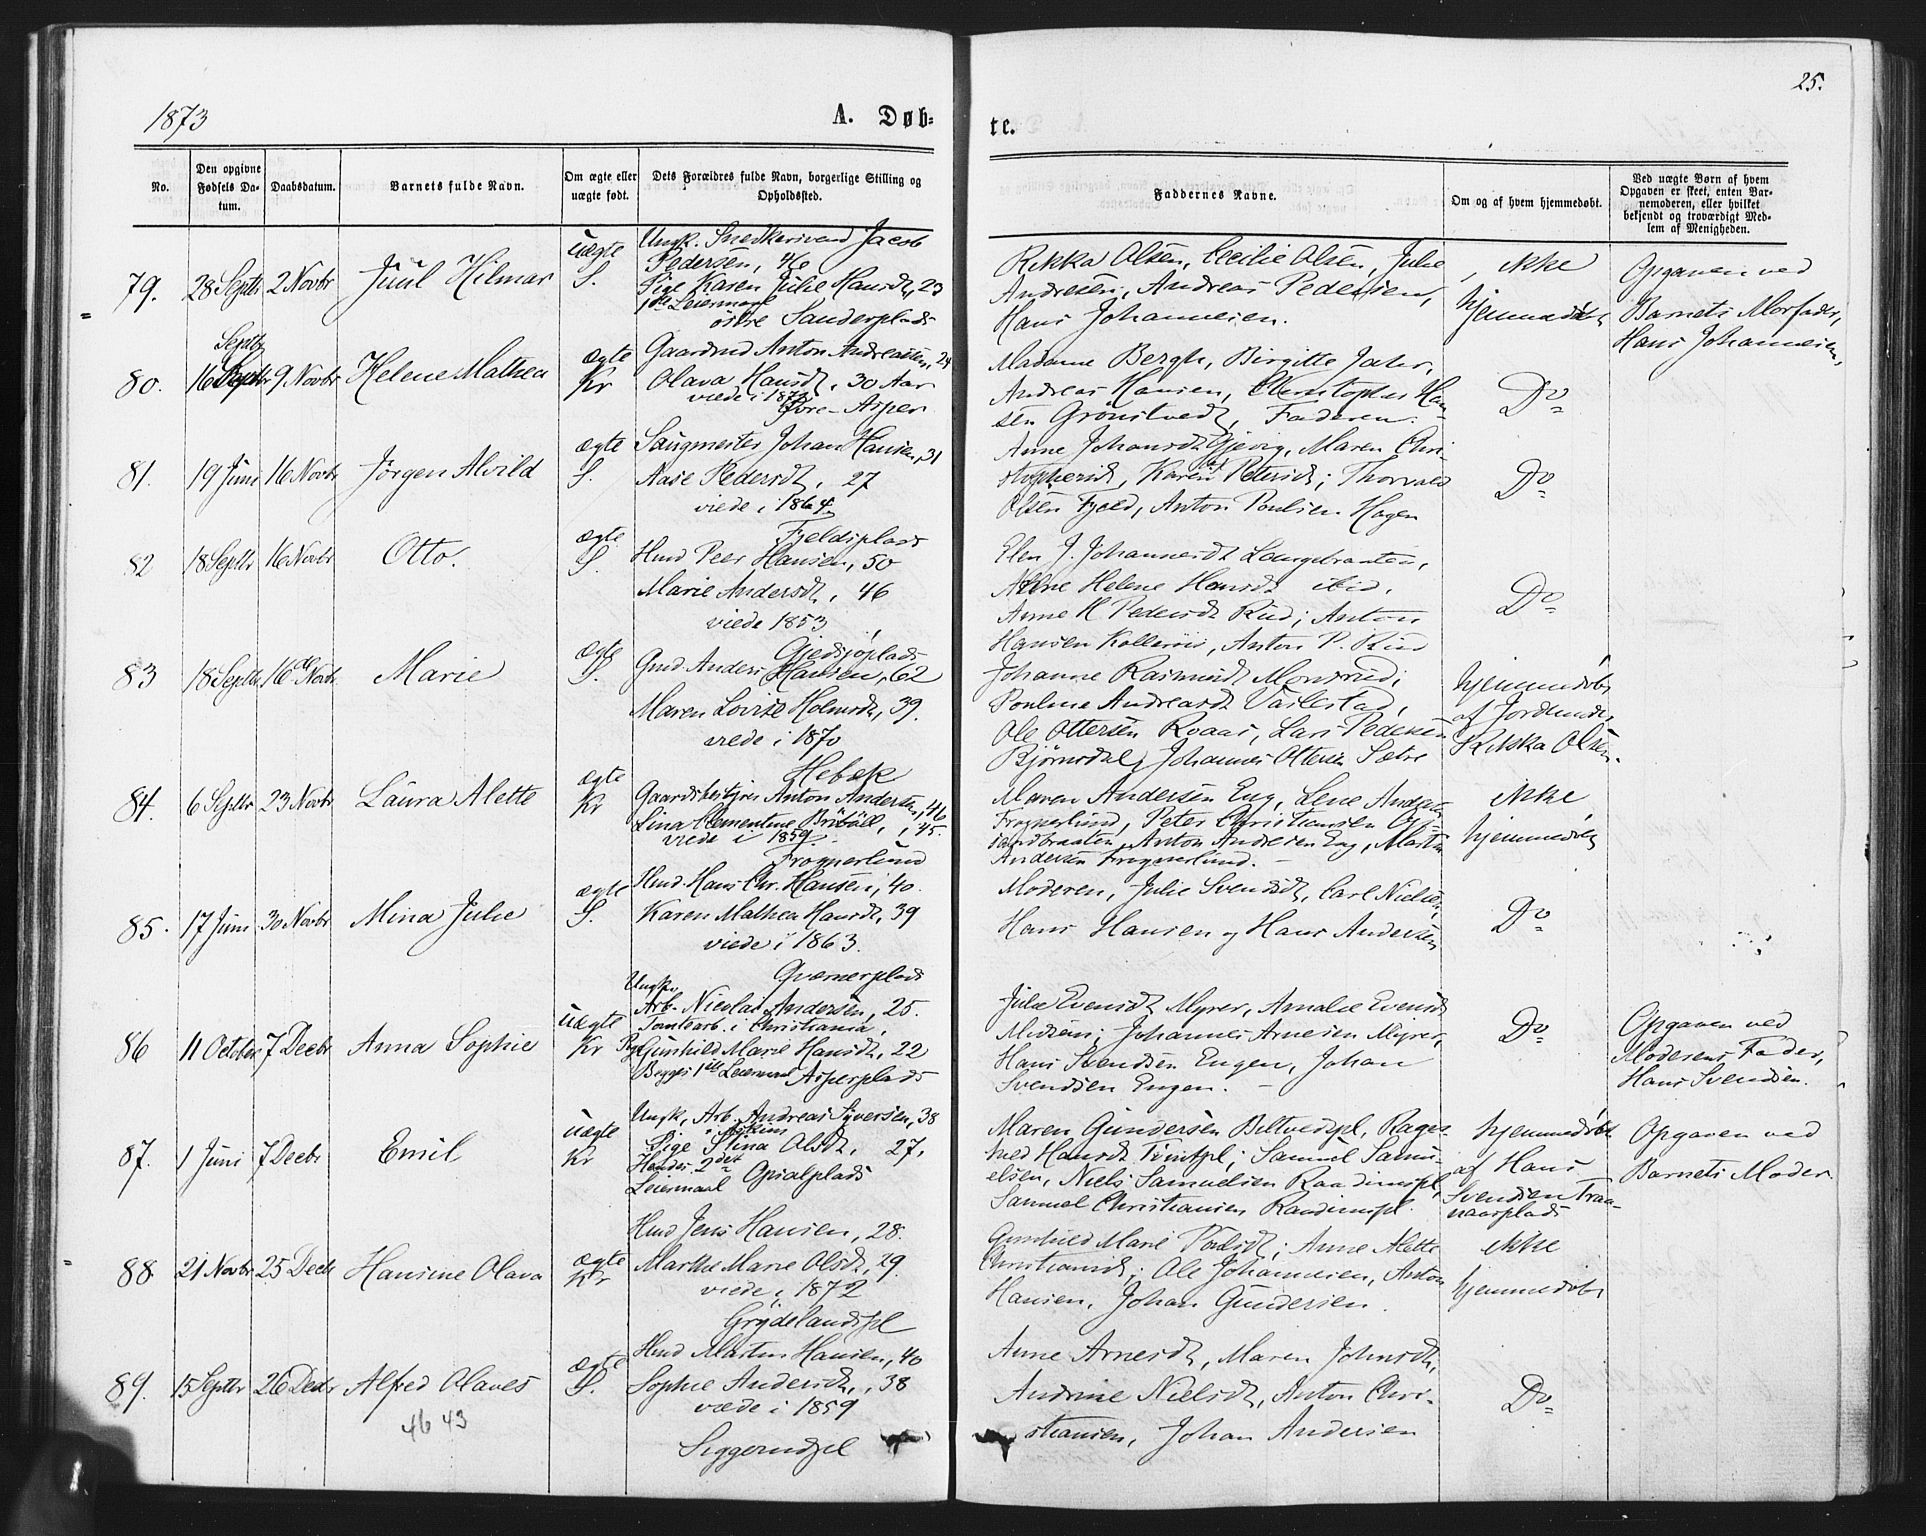 25.
1873
A. Døb-
te.
No.
Den opgivne Fødsels Da-tum.
Daabsdatum.
Barnets fulde Navn.
Om ægte eller uægte født.
Dets Forældres fulde Navn, borgerlige Stilling og Opholdssted.
Faddernes Navne.
Om og af hvem hjemmedøbt.
Ved uægte Børn af hvem Opgaven er skeet, enten Bar-nemoderen, eller hvilket bekjendt og troværdigt Med-lem af Menigheden.
79. 28 Septbr 2 Novbr Juul Hilmar uægte S.
Ungk. Snedkersvend Jacob
Pedersen, 46
Pige Karen Julie Hansdt, 23
1ste Leiermaal
østre Sanderplads
Rikka Olsen, Cecilie Olsen, Julie
Andresen, Andreas Pedersen,
Hans Johannesen.
ikke
hjemmedøbt
Opgaven ved
Barnets Morfader,
Hans Johannesen,
80. 16 Septbr 9 Novbr Helene Mathea ægte Kr
Gaardmd Anton Andreassen, 24
Olava Hansdt, 30 Aar
viede i 1872
Øvre-Asper
Madame Bergh, Birgitte
Andreas Hansen, Christopher Han
sen Grønstvedt, Faderen.
Do
81. 19 Juni 16 Novbr Jørgen Alvild ægte S.
Saugmester Johan Hansen, 31
Aase Pedersdt, 27
viede i 1864
Fjeldsplads
Anne Johansdt Gjevig, Maren Chri-
stophersdt, Karen Petersdt; Thorvald
Olsen Fjeld, Anton Poulsen Hagen
Do
82 18 Septbr 16 Novbr Otto. ægte S.
Hmd Peer Hansen, 50
Marie Andersdt, 46
viede 1853
Gjedsjøplads
Elen J. Johannesdt Langebraaten,
Helene Hansdt ibid,
Anne H Pedersdt Rud; Anton
Hansen Kollerüs, Anton P. Rud
Do
83 18 Septbr 16de Novbr Marie ægte P.
Gmd. Anders Hansen, 62
Maren Lovise Holmsdt, 39.
viede i 1870
Hebæk
Johanne Rasmusdt Monsrud;
Pouline Andreasdt Vaslestad,
Ole Ottersen Roaas, Lars Pedersen
Bjørnsdal, Johannes Ottersen Sætre
hjemmedøbt
af Jordmdr.
Rikka Olsen.
84. 6 Septbr 23 Novbr Laura Alette ægte Kr
Gaardsbestyrer Anton Andersen, 46
Lina Clementine Bribøll, 45.
viede i 1859.
Frognerlund
Maren Andersen Eng, Lene Anders
Frognerlund, Peter Christiansen
Anton Andresen Eng, Martin
Andersen Frognerlund.
ikke
hjemmedøbt
85. 17 Juni 30 Novbr Mina Julie ægte P.
Hmd. Hans Chr. Hansen, 40.
Karen Mathea Hansdt, 39
viede i 1863.
Qværnerplads
Moderen, Julie Svendsdt, Carl Nielsen,
Hans Hansen og Hans Andersen
Do
86 11 October 7 Decbr Anna Sophie uægte Kr
Ungk.
Arb. Nicolai Andersen, 25.
Tomtearb. i Christiania,
Pige Gunhild Marie Hansdt, 22
Begges 1ste Leiermaal Asperplads
Julie Evensdt Myrer, Amalie Evensdt
Johannes Arnesen Myrer,
Hans Svendsen Engen, Johan
Svendsen Engen.
Do
Opgaven ved
Moderens Fader,
Hans Svendsen.
87. 1 Juni 7 Decbr Emil uægte Kr
Ungk, Arb. Andreas Syversen, 38
i Askim
Pige Stina Olsdt, 27,
Hendes 2det
Leiermaal Opsalplads
Maren Gundersen Biltvedpl, Rag-
hed Hansdt Tomtpl; Samuel Samu-
elsen, Niels Samuelsen Raadimspl,
Samuel Christiansen Raadimspl.
hjemmedøbt
af Hans
Svendsen Traa-
naarplads
Opgaven ved
Barnets Moder.
88. 21 Novbr 25 Decbr Hansine Olava ægte Kr
Hmd Jens Hansen, 28.
Marthe Marie Olsdt, 29.
viede i 1872
Grydelandspl
Gunhild Marie Povlsdt; Anne Alette
Christiansdt; Ole Johannesen, Anton
Hansen, Johan Gundersen.
ikke
hjemmedøbt
89. 15 Septbr 26 Decbr Alfred Olaves ægte S.
46 43
Hmd Martin Hansen, 40
Sophie Andersdt, 38
viede i 1859
Siggerudpl
Anne Arnesdt, Maren Johnsdt,
Andrine Nielsdt, Anton Chri-
stiansen, Johan Andersen
Do